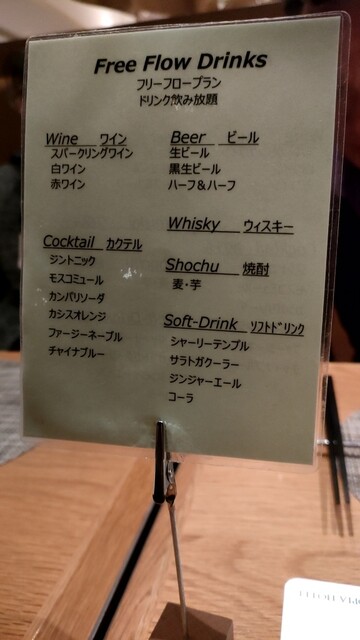 Free Flow Drinks
フリーフロープラン
ドリンク飲み放題
Wine ワイン
スパークリングワイン
白ワイン
赤ワイン
Cocktail カクテル
ジントニック
モスコミュール
カンパリソーダ
カシスオレンジ
ファージーネーブル
チャイナブルー
Beer ビール
生ビール
黒生ビール
ハーフ&ハーフ
Whisky ウィスキー
Shochu 焼酎
麦・芋
Soft-Drink ソフトドリンク
シャーリーテンプル
サラトガクーラー
ジンジャーエール
コーラ